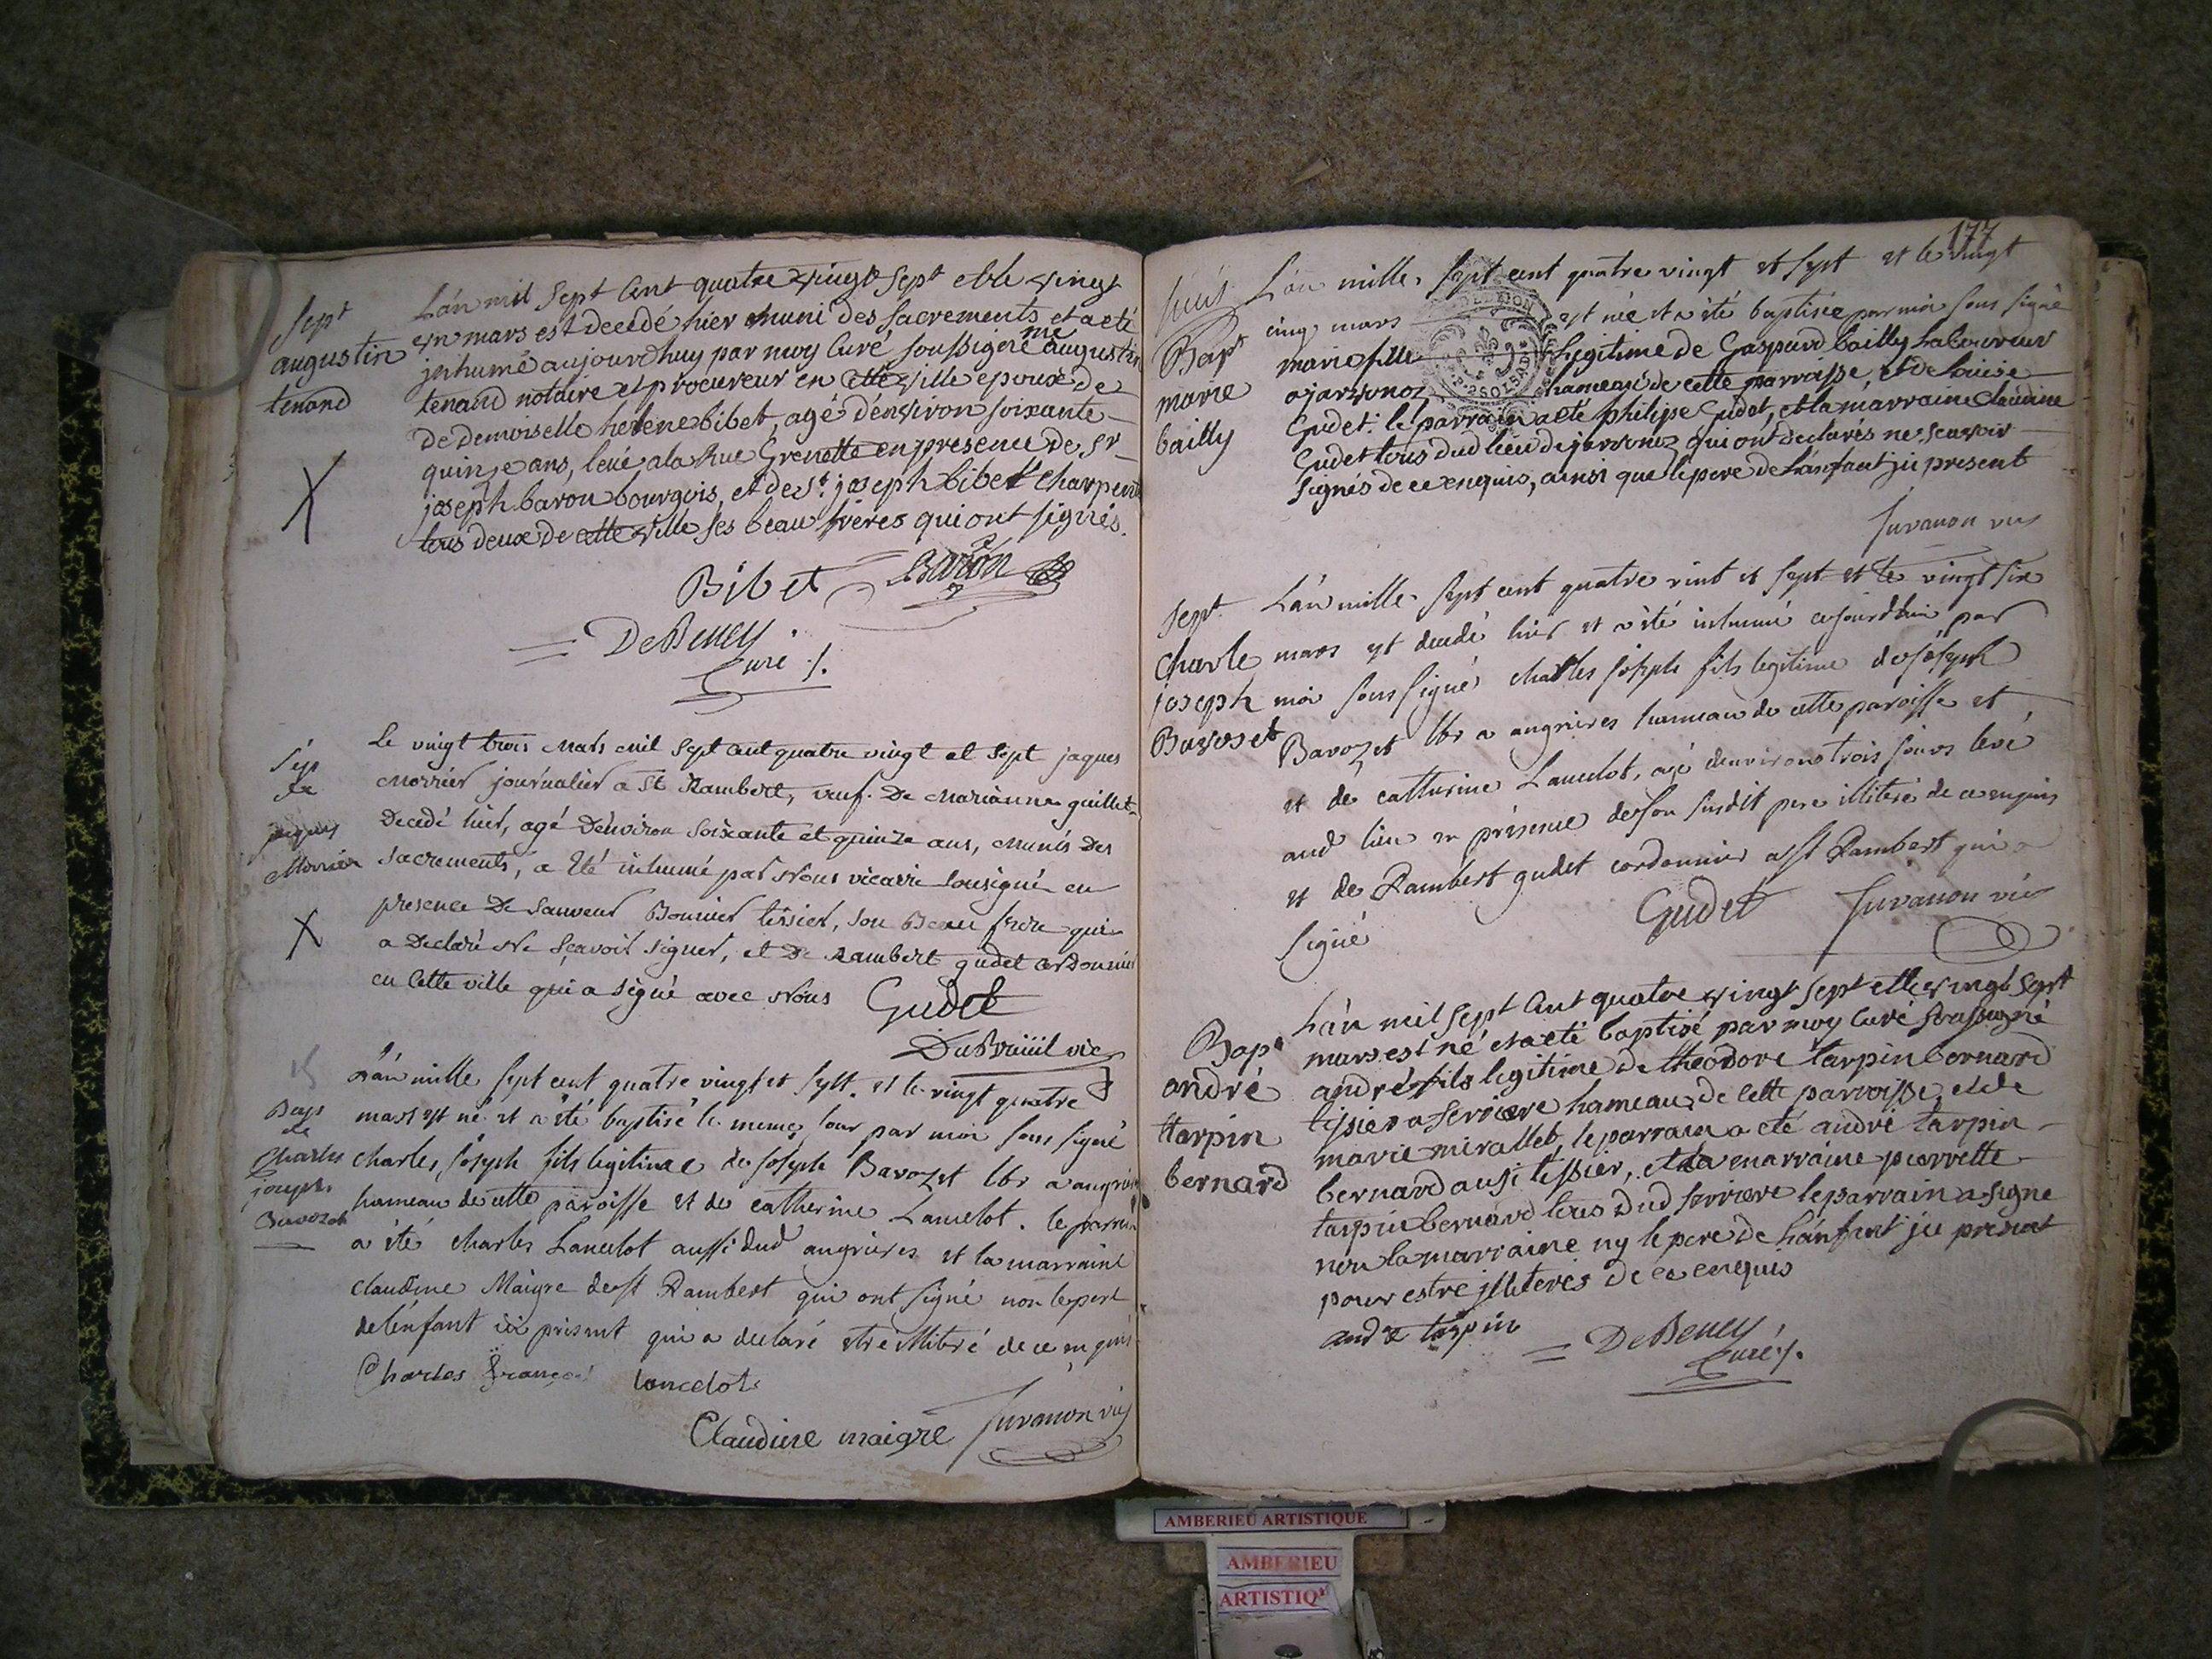 Sept
augustin
tenand
L'an mil sept cent quatre vingt sept et le vingt
un mars est decedé hier muni des sacrements et a eté
jnhumé aujourdhuy par moy curé soussigné me augustin
tenand notaire et procureur en cette ville epoux de
de demoiselle helene bibet, agé d'environ soixante
quinze ans, levé a la rue Grenette en presence de sr
joseph baron bourgois, et de sr joseph bibet charpent
tous deux de cette ville ses beau freres qui ont signés.
Bibet Baron
De Beney
Curé
Sep
de
jaques
Morrier
Le vingt trois mars mil sept cent quatre vingt et sept jaques
Morrier journalier a St Rambert, veuf de Marianne guillet
decedé hier, agé d'environ soixante et quinze ans, munis des
sacrements, a été inhumé par nous vicaire sousigné en
presence de sauveur Bonnier tissier, son Beau frere qui
a declaré ne sçavoir signer, et de Rambert gudet cordonnier
en cette ville qui a signé avec nous Gudet
DuBreüil vic
Bap
de
Charles
joseph
Bavozet
L'an mille sept cent quatre vingt et sept et le vingt quatre
mars est né et a été baptisé le meme jour par moi sous signé
charles, joseph fils legitime de joseph Bavozet lbr a angrieres
hameau de cette paroisse et de catherine Lancelot. le parrain
a été charles Lancelot aussi dud angrieres et la marraine
claudine Maigre de st Rambert qui ont signé non le pere
de l'enfant ici présent qui a declaré etre illitéré de ce enquis
Charles françois lancelot
Claudine maigre Juvanon vic
177
Bapt
marie
bailly
L'an mille sept cent quatre vingt et sept et le vingt
cinq mars est née et a été baptisée par moi sous signé
marie fille legitime de Gaspard bailly laboureur
a javornoz hameau de cette parroisse, et de Louise
Gudet: le parrain a eté philipe Gudet, et la marraine claudine
Gudet tous dud lieu de javornoz qui ont declarés ne scavoir
signés de ce enquis, ainsi que le pere de l'anfant jci present
Juvanon vic
Sept
Charle
joseph
Bavoset
L'an mille sept cent quatre vint et sept et le vingt six
mars est decedé hier et a été inhumé aujourdhui par
moi sous signé charles joseph fils legitime de joseph
Bavozet lbr a angrieres hameau de cette paroisse et
et de catherine Lancelot, agé d'environ trois jours levé
aud lieu en présence de son susdit pere illiteré de ce enquis
et de Rambert gudet cordonnier a st Rambert qui a
signé Gudet Juvanon vic
Bapt
andré
tarpin
bernard
L'an mil sept cent quatre vingt sept et le vingt sept
mars est né et a eté baptisé par moy curé soussigné
andré fils legitime de theodore tarpin bernard
tissier a serriere hameau de cette parroisse, et de
marie mirallet, le parrain a eté andré tarpin
bernard aussi tissier, et la marraine pierrette
tarpin bernard tous dud serriere le parrain a signé
non la marraine ny le pere de l'anfant jci present
pour estre jlliterés de ce enquis
andre tarpin
De Beney
Curé
AMBERIEU ARTISTIQUE
AMBERIEU
ARTISTIQ